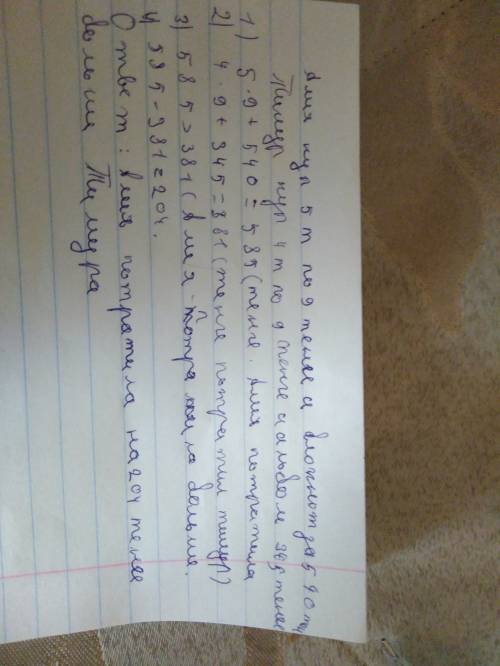 Алия куп 5 т по 9 тенге и блокнот за 540 тен
Тимур куп 4 т по 9 тенге и альбом 345 тенге
1) 5·9+540=585(тенге. Алия потратила
2) 4·9+345=381(тенге потратил тимур)
3) 585>381(Алия-потратила больше.
4) 585-381=204.
Ответ: Алия потратила на 204 тенге
больше Тимура